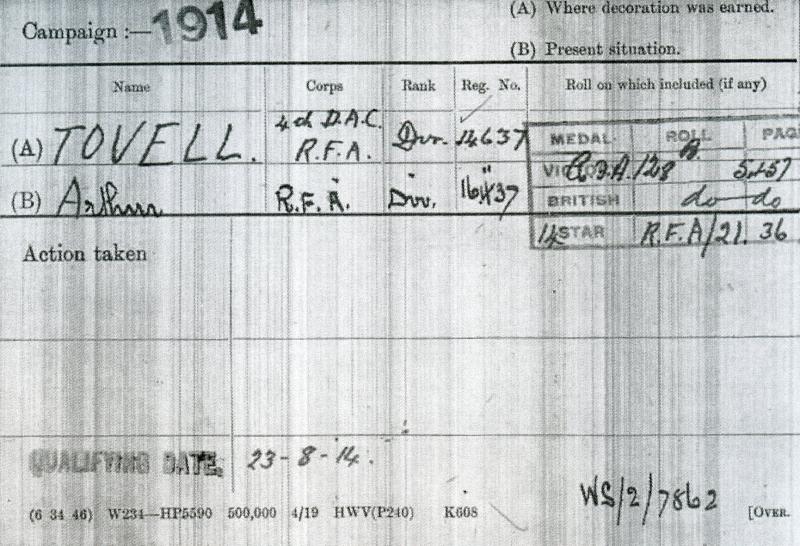 (A) Where decoration was earned.
Campaign :— 1914
(B) Present situation.
Name Corps Rank Reg. No. Roll on which included (if any)
4th D.A.C.
(A) TOVELL. R.F.A. Dvr. 14637 MEDAL ROLL PAG
R.F.A./128 B. 5157
(B) Arthur R.F.A. Dvr. BRITISH do do
14 STAR R.F.A/21. 36
Action taken
QUALIFYING DATE. 23-8-14.
WS/2/7862
(6 34 46) W234—HP5590 500,000 4/19 HWV(P240) K608 [OVER.